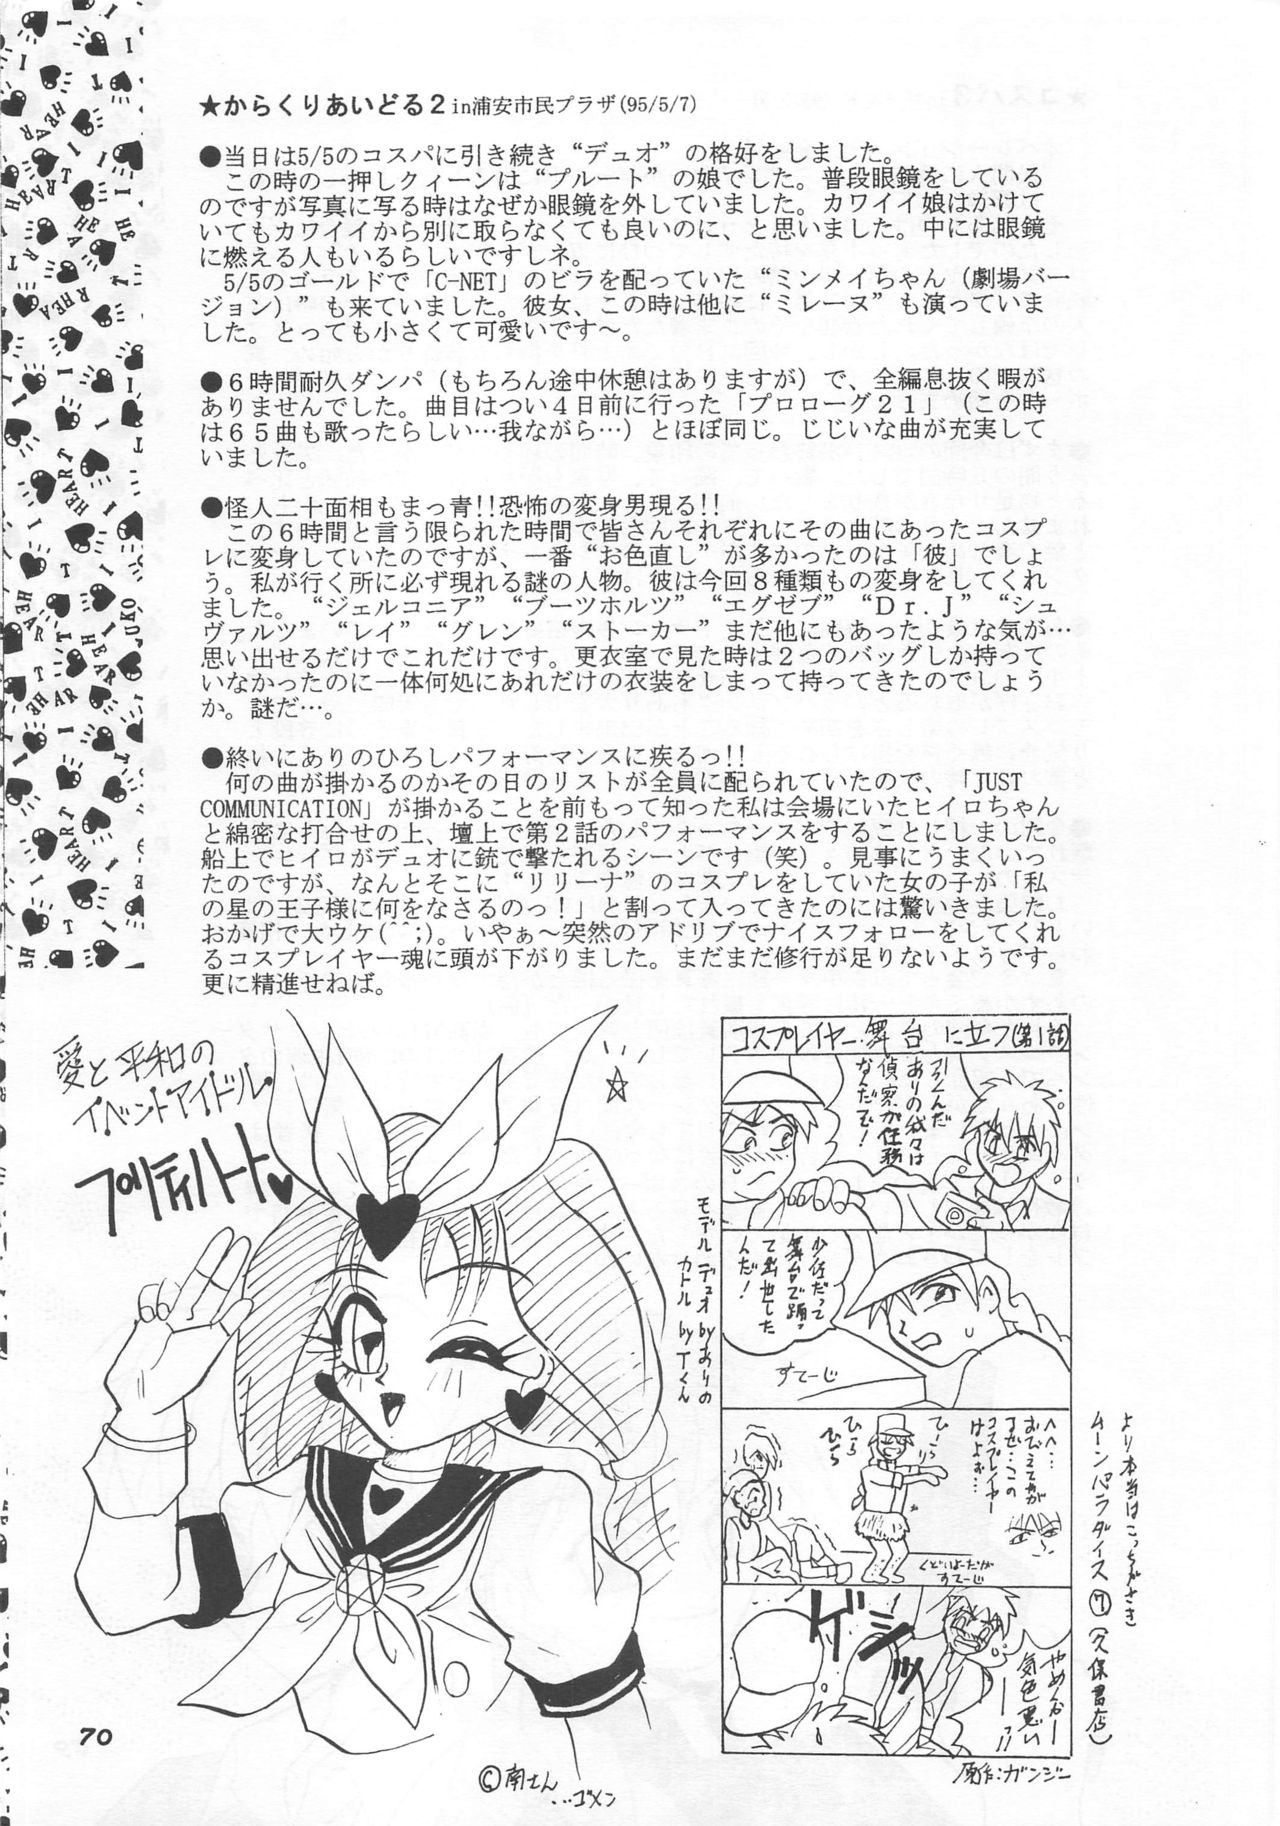 ★からくりあいどる２in浦安市民プラザ(95/5/7)
●当日は5/5のコスパに引き続き“デュオ”の格好をしました。
この時の一押しクィーンは“プルート”の娘でした。普段眼鏡をしている
のですが写真に写る時はなぜか眼鏡を外していました。カワイイ娘はかけて
いてもカワイイから別に取らなくても良いのに、と思いました。中には眼鏡
に燃える人もいるらしいですしネ。
5/5のゴールドで「C-NET」のビラを配っていた“ミンメイちゃん（劇場バー
ジョン）”も来ていました。彼女、この時は他に“ミレーヌ”も演っていま
した。とっても小さくて可愛いです～。
●６時間耐久ダンパ（もちろん途中休憩はありますが）で、全編息抜く暇が
ありませんでした。曲目はつい４日前に行った「プロローグ２１」（この時
は６５曲も歌ったらしい…我ながら…）とほぼ同じ。じじいな曲が充実して
いました。
●怪人二十面相もまっ青!!恐怖の変身男現る!!
この６時間と言う限られた時間で皆さんそれぞれにその曲にあったコスプ
レに変身していたのですが、一番“お色直し”が多かったのは「彼」でしょ
う。私が行く所に必ず現れる謎の人物。彼は今回８種類もの変身をしてくれ
ました。“ジェルコニア”“ブーツホルツ”“エグゼブ”“Ｄｒ.Ｊ”“シュ
ヴァルツ”“レイ”“グレン”“ストーカー”まだ他にもあったような気が…
思い出せるだけでこれだけです。更衣室で見た時は２つのバッグしか持って
いなかったのに一体何処にあれだけの衣装をしまって持ってきたのでしょう
か。謎だ…。
●終いにありのひろしパフォーマンスに疾るっ!!
何の曲が掛かるのかその日のリストが全員に配られていたので、「JUST
COMMUNICATION」が掛かることを前もって知った私は会場にいたヒイロちゃん
と綿密な打合せの上、壇上で第２話のパフォーマンスをすることにしました。
船上でヒイロがデュオに銃で撃たれるシーンです（笑）。見事にうまくいっ
たのですが、なんとそこに“リリーナ”のコスプレをしていた女の子が「私
の星の王子様に何をなさるのっ！」と割って入ってきたのには驚いきました。
おかげで大ウケ(^^;)。いやぁ～突然のアドリブでナイスフォローをしてくれ
るコスプレイヤー魂に頭が下がりました。まだまだ修行が足りないようです。
更に精進せねば。
愛と平和の
イベントアイドル
プリティハート♥
コスプレイヤー舞台に立つ(第1話)
引くんだ
ありの我々は
偵察が任務
なんだぞ！
少佐だって
舞台で踊っ
て出世した
んだ！
すてーじ
モデル デュオ byありの
カトル by Tくん
へへ…
おぼえてやが
コスプレイヤー
けはよぉ…
ひーらり
ひら
ひら
すてーじ
ゲシッ
やめんかー
気色悪い
ーっ!!
原作:ガンジー
より本当はこっちがさき
ムーンパラダイス⑦(久保書店)
©南さん
…ゴメン
70